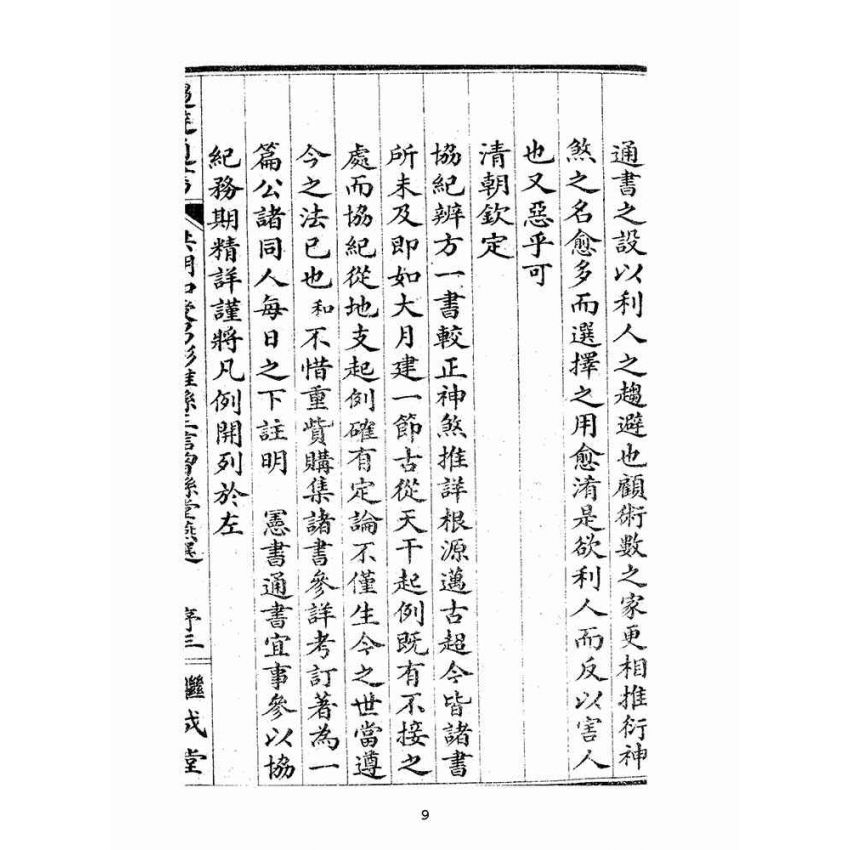 通書之設以利人之趨避也顧術數之家更相推衍神
煞之名愈多而選擇之用愈淆是欲利人而反以害人
也又惡乎可
清朝欽定
協紀辨方一書較正神煞推詳根源邁古超今皆諸書
所未及即如大月建一節古從天干起例既有不接之
處而協紀從地支起例確有定論不僅生今之世當遵
今之法已也和不惜重貲購集諸書參詳考訂著為一
篇公諸同人每日之下註明　憲書通書宜事參以協
紀務期精詳謹將凡例開列於左
序三
繼成堂
9